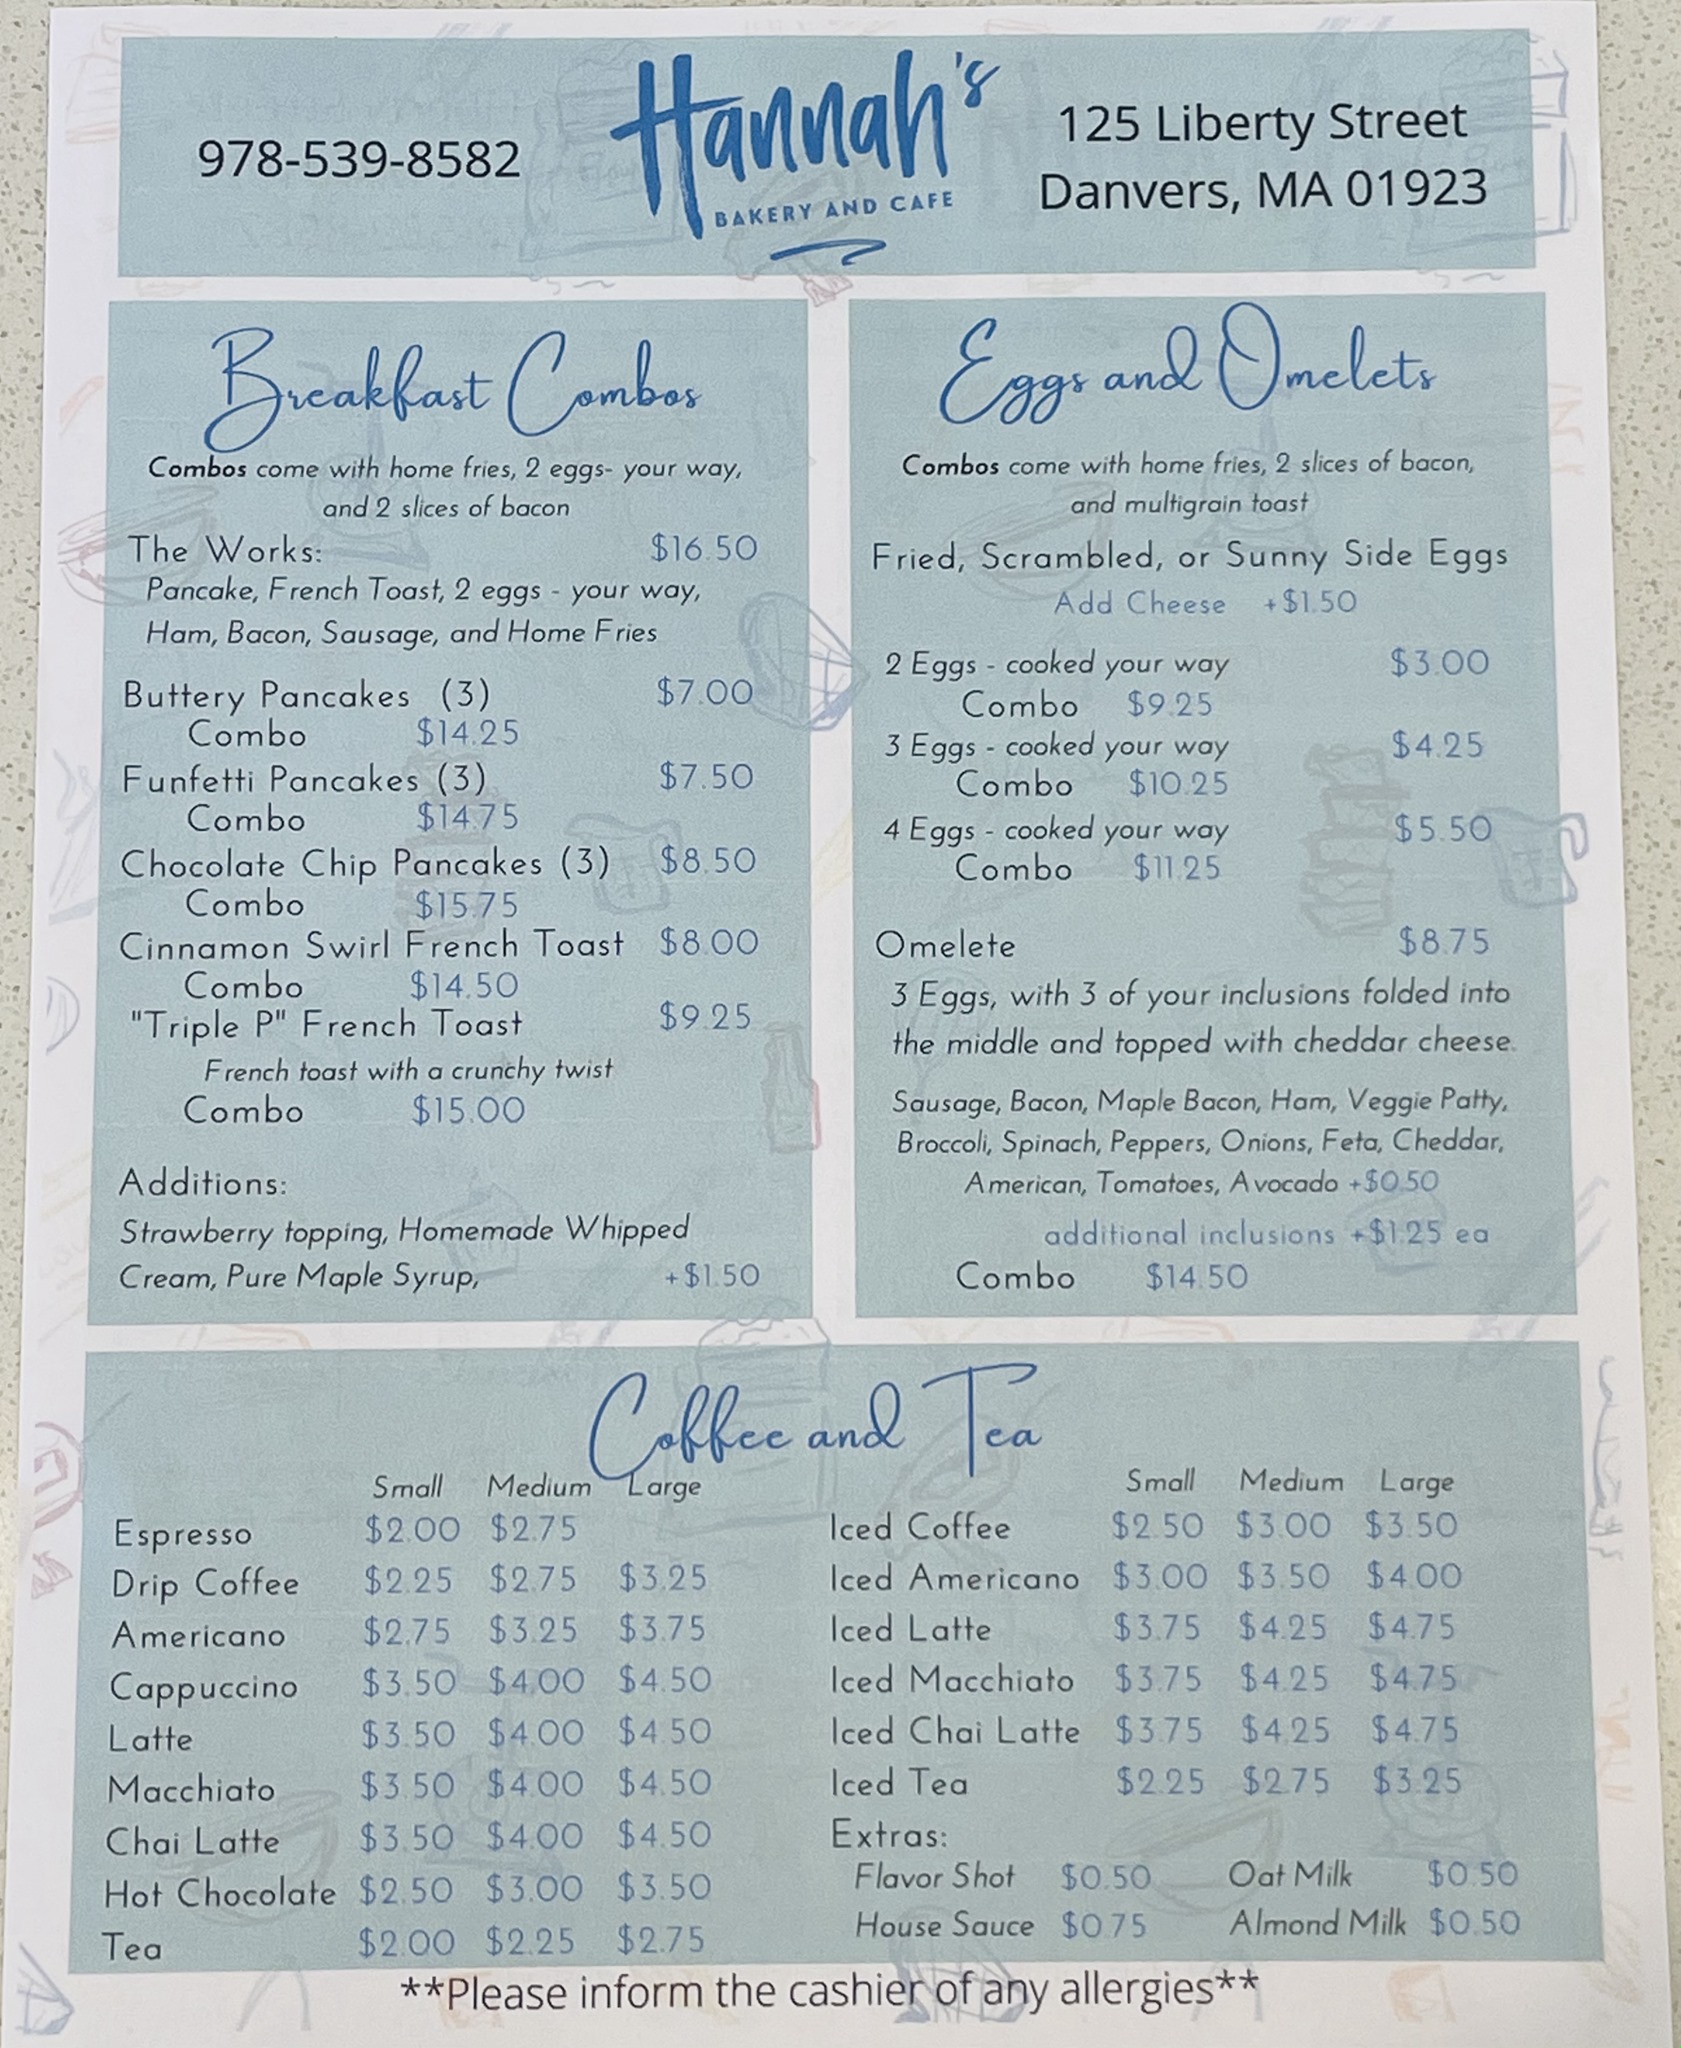 978-539-8582
Hannah's
BAKERY AND CAFE
125 Liberty Street
Danvers, MA 01923
Breakfast Combos
Combos come with home fries, 2 eggs- your way,
and 2 slices of bacon
The Works: $16.50
Pancake, French Toast, 2 eggs - your way,
Ham, Bacon, Sausage, and Home Fries
Buttery Pancakes (3) $7.00
Combo $14.25
Funfetti Pancakes (3) $7.50
Combo $14.75
Chocolate Chip Pancakes (3) $8.50
Combo $15.75
Cinnamon Swirl French Toast $8.00
Combo $14.50
"Triple P" French Toast $9.25
French toast with a crunchy twist
Combo $15.00
Additions:
Strawberry topping, Homemade Whipped
Cream, Pure Maple Syrup, +$1.50
Eggs and Omelets
Combos come with home fries, 2 slices of bacon,
and multigrain toast
Fried, Scrambled, or Sunny Side Eggs
Add Cheese +$1.50
2 Eggs - cooked your way $3.00
Combo $9.25
3 Eggs - cooked your way $4.25
Combo $10.25
4 Eggs - cooked your way $5.50
Combo $11.25
Omelete $8.75
3 Eggs, with 3 of your inclusions folded into
the middle and topped with cheddar cheese.
Sausage, Bacon, Maple Bacon, Ham, Veggie Patty,
Broccoli, Spinach, Peppers, Onions, Feta, Cheddar,
American, Tomatoes, Avocado +$0.50
additional inclusions +$1.25 ea
Combo $14.50
Coffee and Tea
Small Medium Large
Espresso $2.00 $2.75
Drip Coffee $2.25 $2.75 $3.25
Americano $2.75 $3.25 $3.75
Cappuccino $3.50 $4.00 $4.50
Latte $3.50 $4.00 $4.50
Macchiato $3.50 $4.00 $4.50
Chai Latte $3.50 $4.00 $4.50
Hot Chocolate $2.50 $3.00 $3.50
Tea $2.00 $2.25 $2.75
Small Medium Large
Iced Coffee $2.50 $3.00 $3.50
Iced Americano $3.00 $3.50 $4.00
Iced Latte $3.75 $4.25 $4.75
Iced Macchiato $3.75 $4.25 $4.75
Iced Chai Latte $3.75 $4.25 $4.75
Iced Tea $2.25 $2.75 $3.25
Extras:
Flavor Shot $0.50 Oat Milk $0.50
House Sauce $0.75 Almond Milk $0.50
**Please inform the cashier of any allergies**